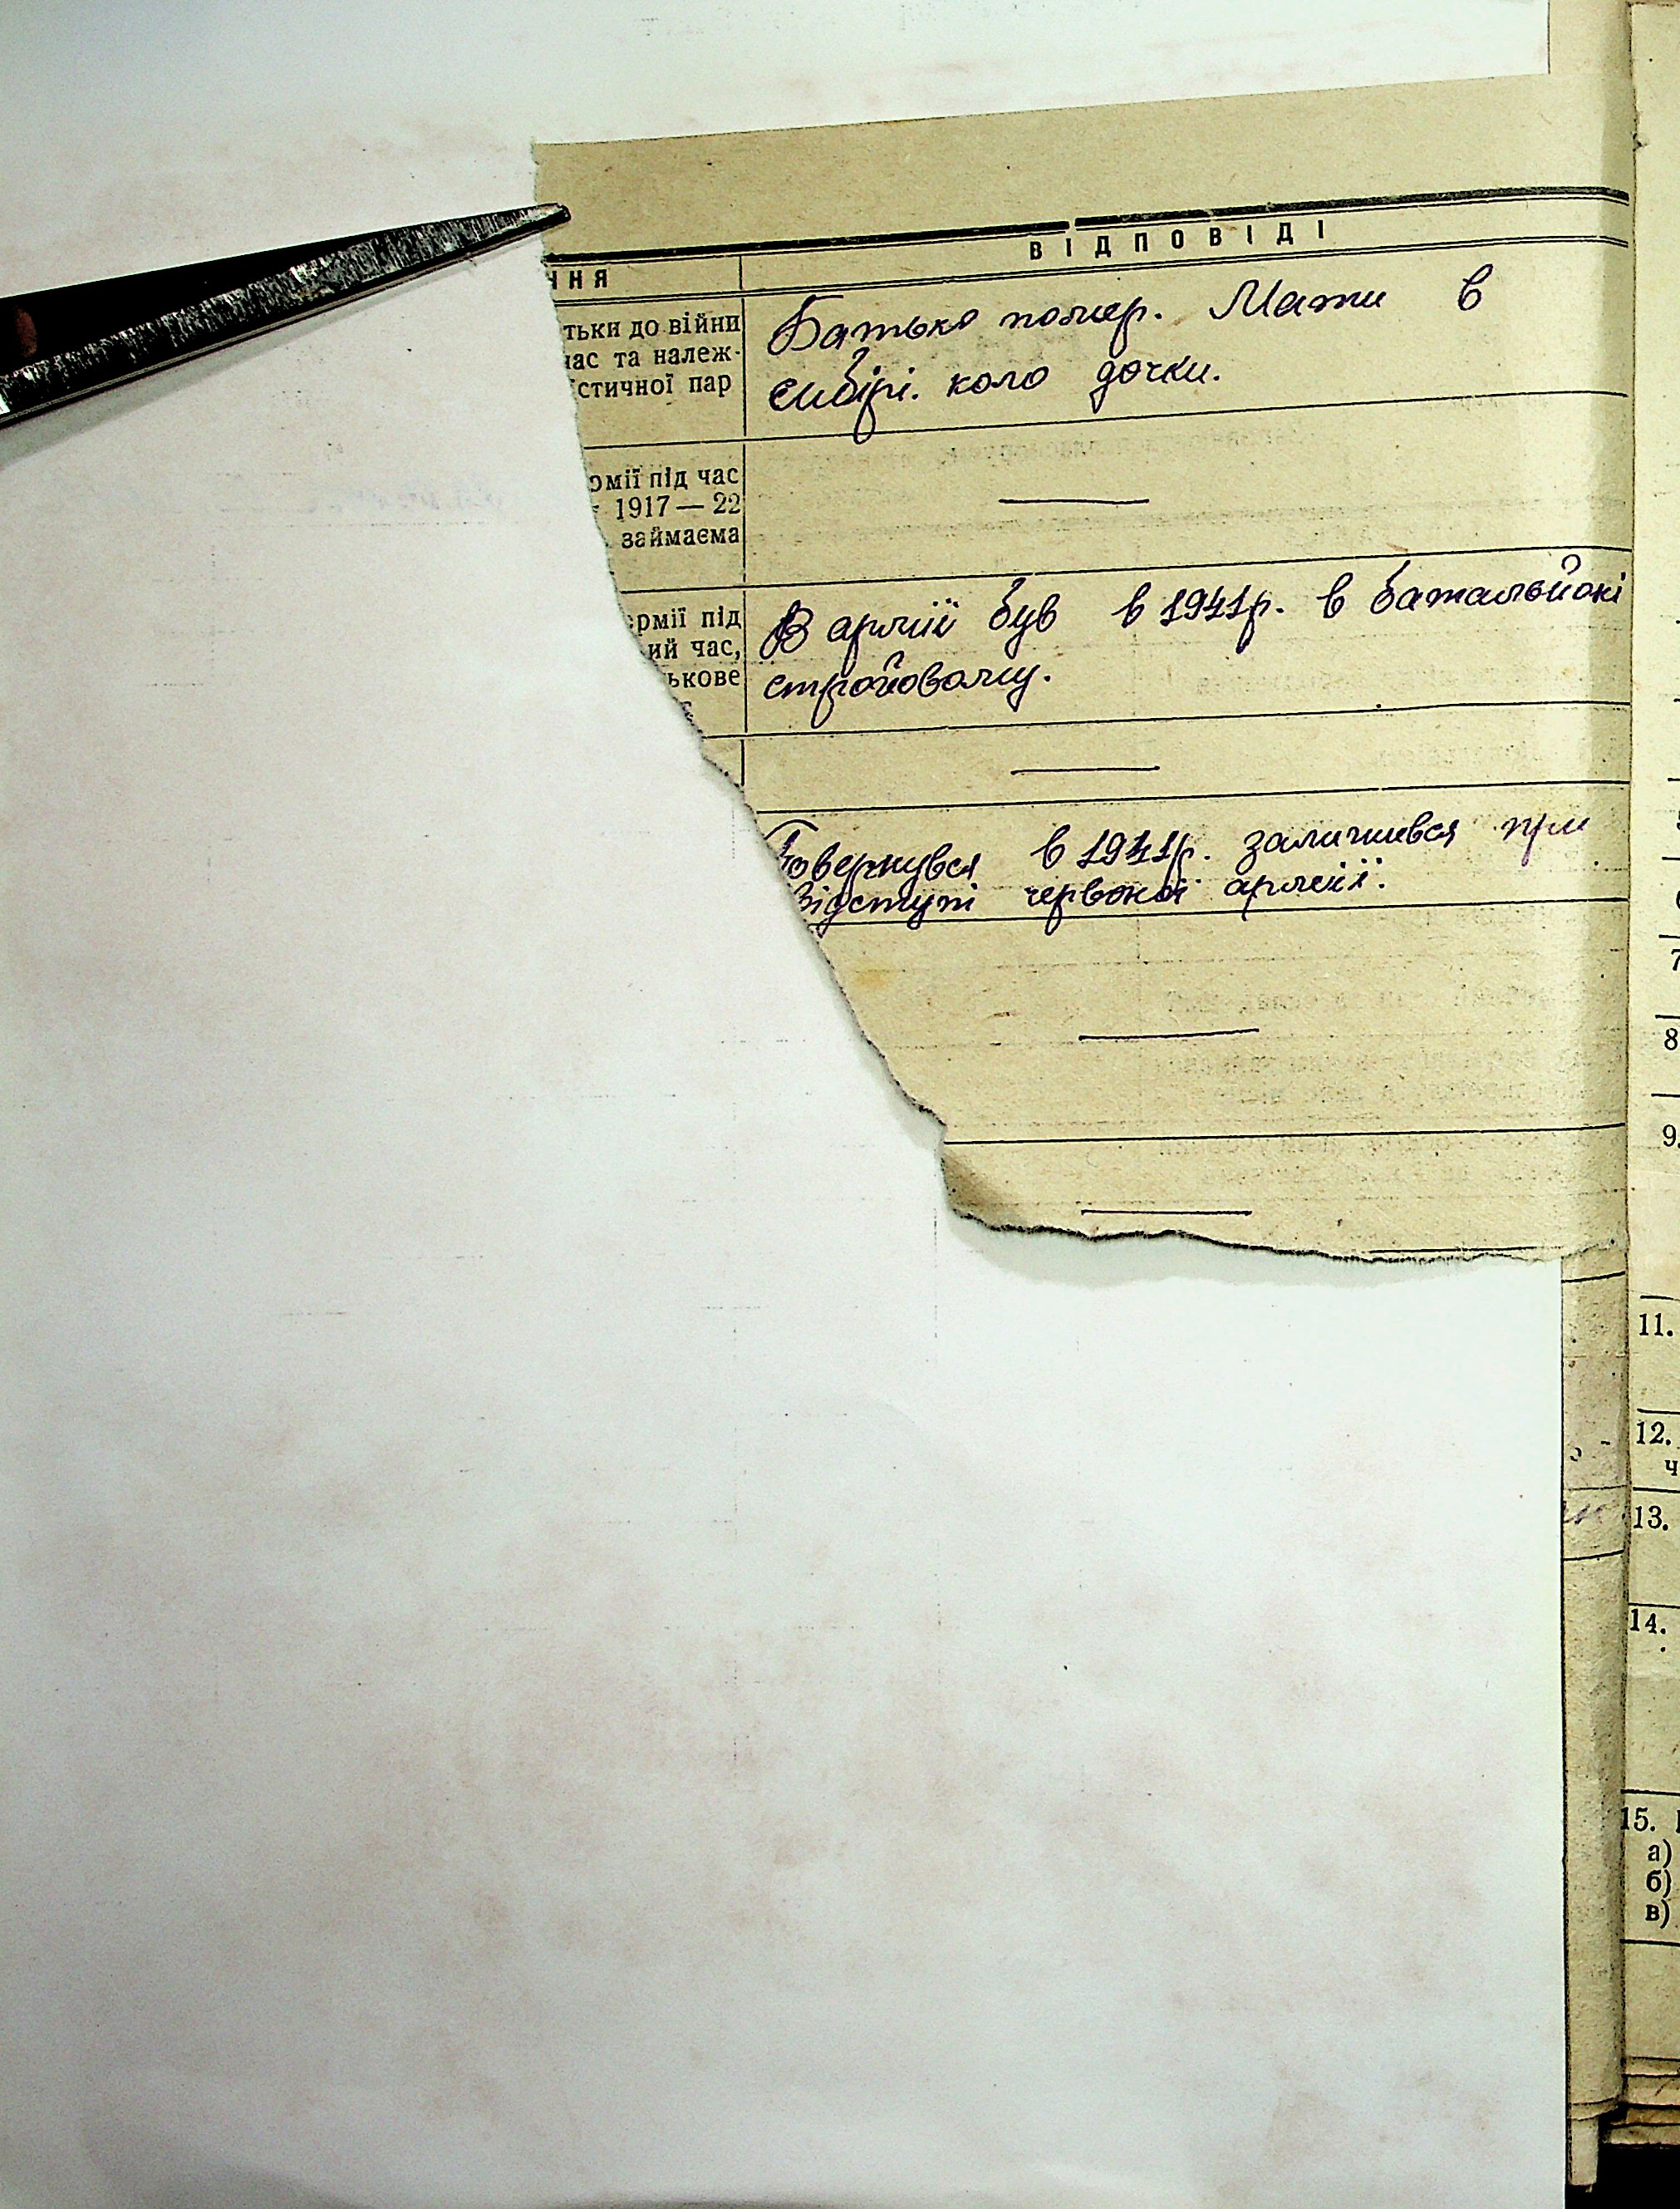 ННЯ
ВІДПОВІДІ
тьки до війни
час та належ-
істичної пар
Батько помер. Мати в
Сибірі. коло дочки.
рмії під час
1917 — 22
займаєма
—
армії під
ий час,
ькове
В армії був в 1941р. в батальйоні
стройовому.
—
Повернувся в 1941р. залишився при
відступі червоної армії.
—
—
7
8
9.
11.
12.
ч
13.
14.
15.
а)
б)
в)